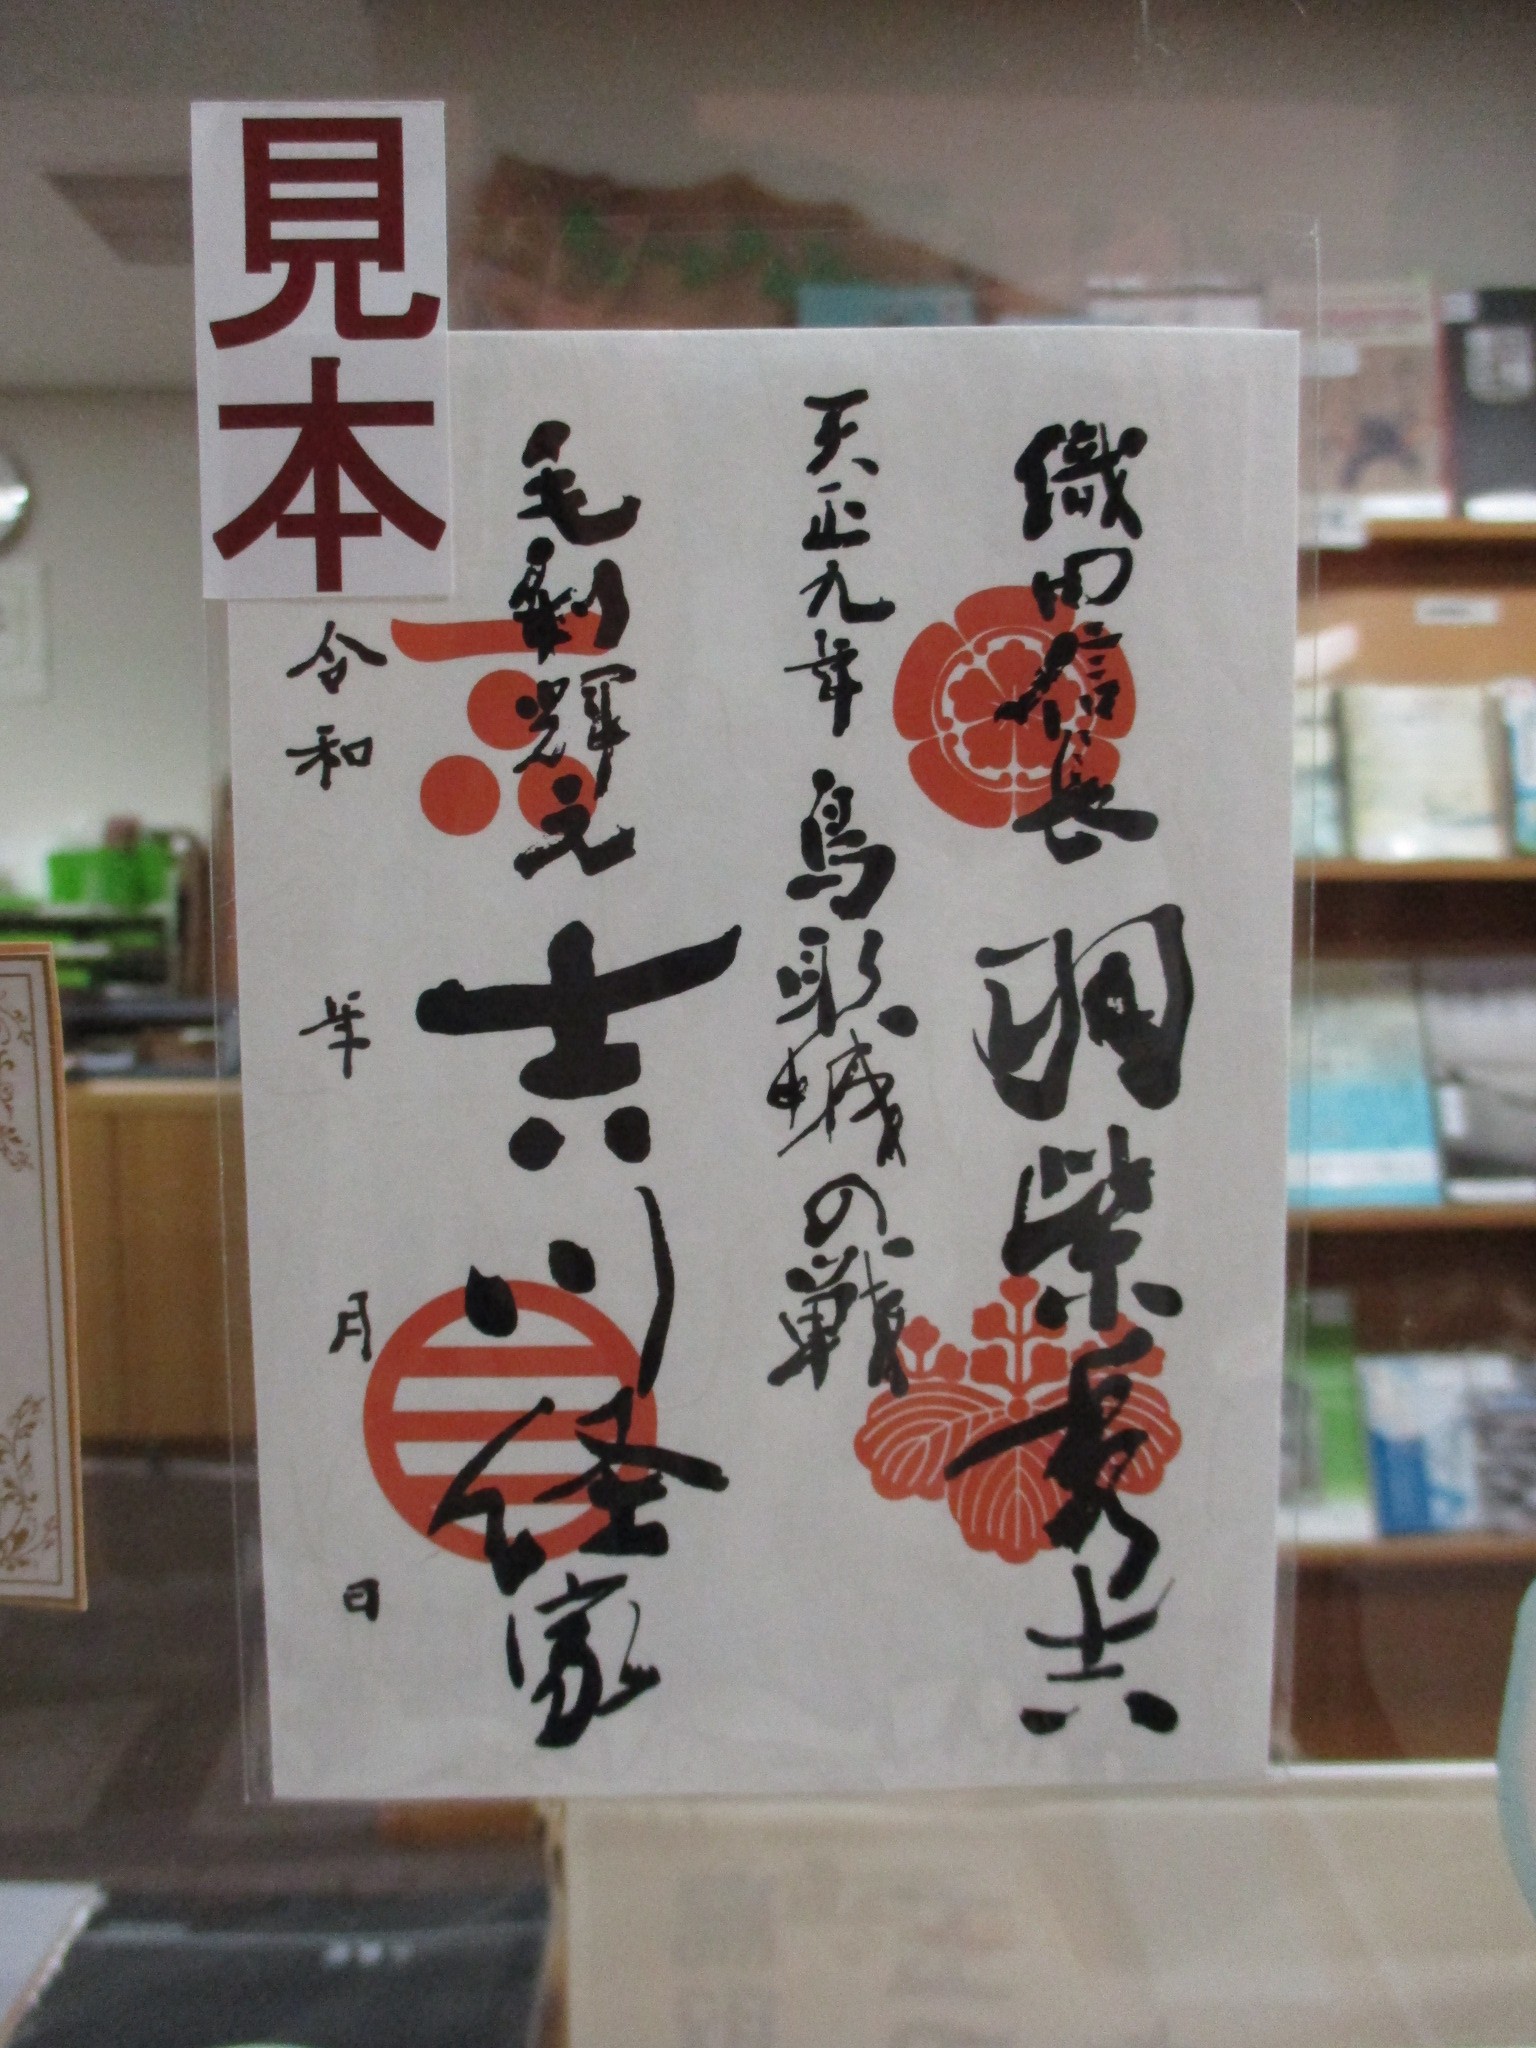 見本
織田信長 羽柴秀吉
天正九年 鳥取城の戦
毛利輝元 吉川経家
令和 年 月 日